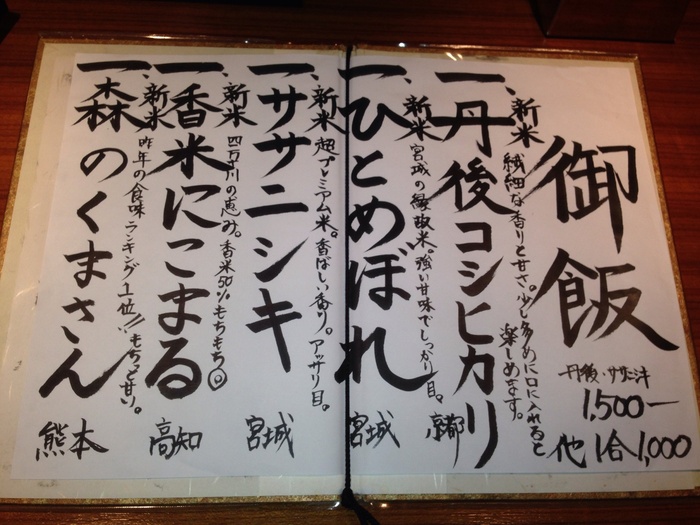 御飯
丹後・ササニシキ
1,500ー
他 1合 1,000
一、丹後コシヒカリ
京都
新米 繊細な香りと甘さ。少し多めに口に入れると
楽しめます。
一、ひとめぼれ
宮城
新米 宮城の縁故米。強い甘味でしっかり目。
一、ササニシキ
宮城
新米 超プレミアム米。香ばしい香り。アッサリ目。
一、香米にこまる
高知
新米 四万十川の恵み。香米50% もちもち
一、森のくまさん
熊本
新米 昨年の食味ランキング1位!! もちっと甘い。